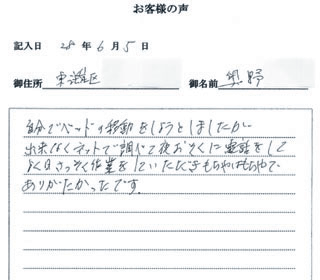 お客様の声
記入日 28年6月5日
御住所 東灘区 御名前 奥野
自分でベッドの移動をしようとしましたが
出来なくネットで調べて夜おそくに電話をして
よく日さっそく作業をしていただき
ありがたかったです。